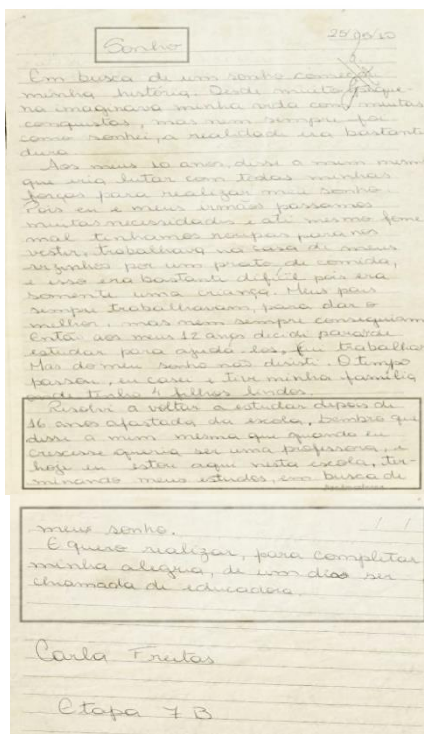 Sonho
25/05/20
Em busca de um sonho começei
minha história. Desde muito peque-
na imaginava minha vida com muitas
conquistas, mas nem sempre foi
como sonhei, a realidade era bastante
dura.
Aos meus 10 anos, disse a mim mesma
que iria lutar com todas minhas
forças para realizar meu sonho.
Pois eu e meus irmãos passamos
muitas necessidades e até mesmo fome
mal tinhamos roupas para nos
vestir, trabalhava na casa de meus
vizinhos por um prato de comida,
e isso era bastante difícil pois era
somente uma criança. Meus pais
sempre trabalhavam, para dar o
melhor, mas nem sempre conseguiam
Então aos meus 12 anos decidi parar de
estudar para ajudá-los, fui trabalhar
Mas do meu sonho não desisti. O tempo
passou, eu casei e tive minha família
onde tenho 4 filhos lindos.
Resolvi a voltar a estudar depois de
16 anos afastada da escola, lembro que
disse a mim mesma que quando eu
crescesse queria ser uma professora, e
hoje eu estou aqui nesta escola, ter-
minando meus estudos, em busca de
meu sonho.
E quero realizar, para completar
minha alegria, de um dia ser
chamada de educadora.
Carla Freitas
Etapa 7 B